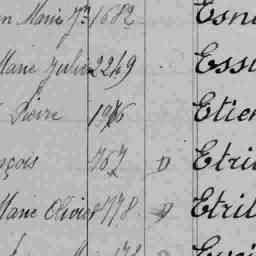 n Marie Jne 1682 Esn
Marie Julie 2249 Essi
Pierre 1986 Etien
nçois 767 D Etri
Marie Olivie 8778 D Etril